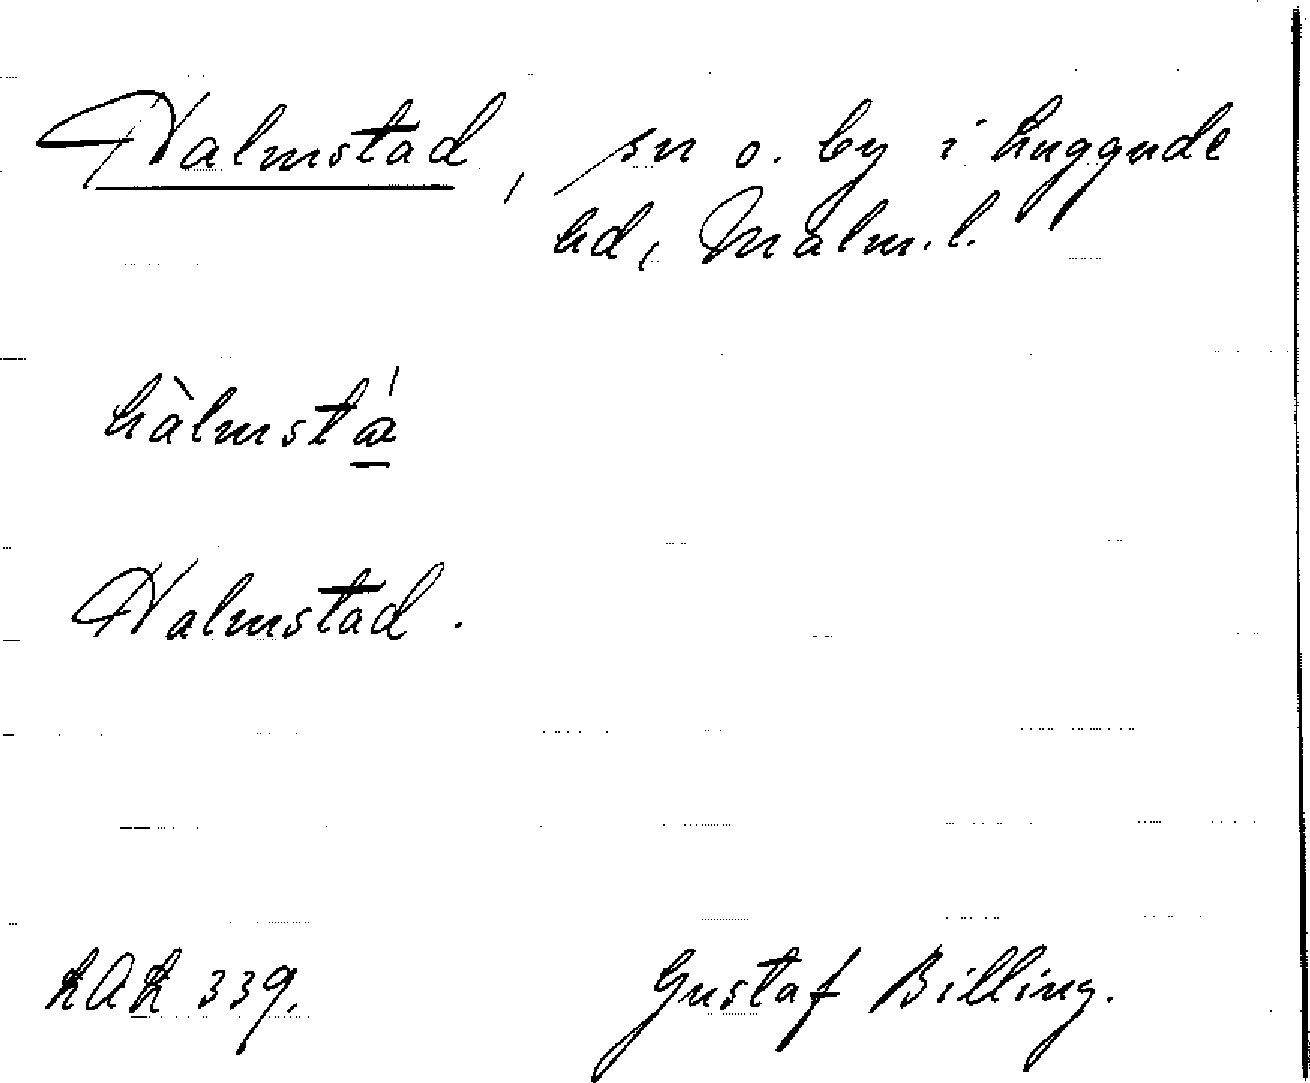 Halmstad, sn o. by i Luggude
hd, Malm. l.
hàlmstá
Halmstad.
LAL 339.
Gustaf Billing.